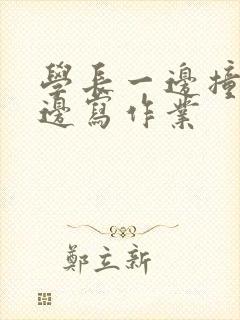 學長一邊撞
邊寫作業
鄭立新